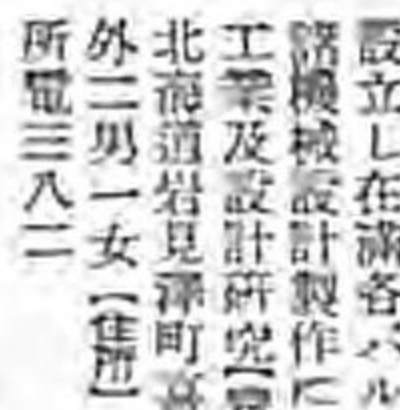 設立し在満各パル
諸機械設計製作に
工業及設計研究【
北海道岩見澤町
外二男一女【住所】
所電三八二